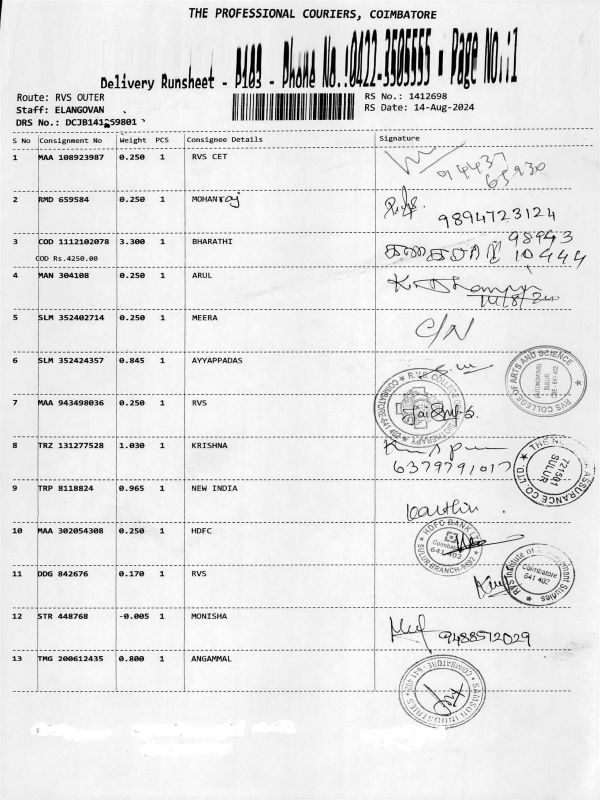 THE PROFESSIONAL COURIERS, COIMBATORE
Delivery Runsheet - P103 - Phone No.:0422-3505555 - Page No.:1
Route: RVS OUTER
RS No.: 1412698
Staff: ELANGOVAN
RS Date: 14-Aug-2024
DRS No.: DCJB141259801
S No Consignment No Weight PCS Consignee Details Signature
1 MAA 108923987 0.250 1 RVS CET 94437
65930
2 RMD 659584 0.250 1 MOHANraj 9894723124
3 COD 1112102078 3.300 1 BHARATHI 98943
COD Rs.4250.00 10444
4 MAN 304108 0.250 1 ARUL
5 SLM 352402714 0.250 1 MEERA C/N
6 SLM 352424357 0.845 1 AYYAPPADAS RVS COLLEGE OF ARTS AND SCIENCE (AUTONOMOUS) SULUR, CBE - 641 402
7 MAA 943498036 0.250 1 RVS
8 TRZ 131277528 1.030 1 KRISHNA 6379791017
721501 SULUR
9 TRP 8118824 0.965 1 NEW INDIA
10 MAA 302054308 0.250 1 HDFC HDFC BANK
SULUR BRANCH
11 DDG 842676 0.170 1 RVS RVS Institute of Management Studies Coimbatore 641 402
12 STR 448768 -0.005 1 MONISHA 9488512029
13 TMG 200612435 0.800 1 ANGAMMAL SAMSON INDUSTRIES COIMBATORE - 641 402